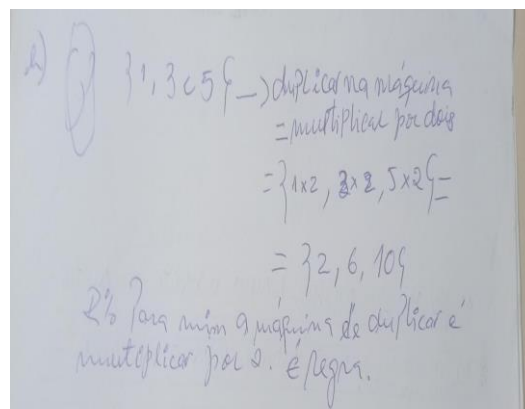 b) }1, 3 e 5{ → duplicar na máquina
= multiplicar por dois
= }1x2, 3x2, 5x2{ =
= }2, 6, 10{
R% Para mim a máquina de duplicar é
multiplicar por 2. É regra.